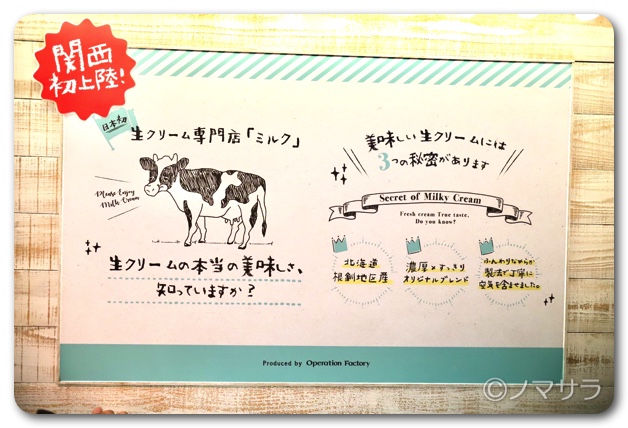 関西
初上陸!
日本初
生クリーム専門店「ミルク」
Please Enjoy
Milk Cream
生クリームの本当の美味しさ、
知っていますか?
美味しい生クリームには
3つの秘密があります
Secret of Milky Cream
Fresh cream True taste.
Do you know?
北海道
根釧地区産
濃厚×すっきり
オリジナルブレンド
ふんわりなめらか
製法で丁寧に
空気を含ませました。
Produced by Operation Factory
©ノマサラ